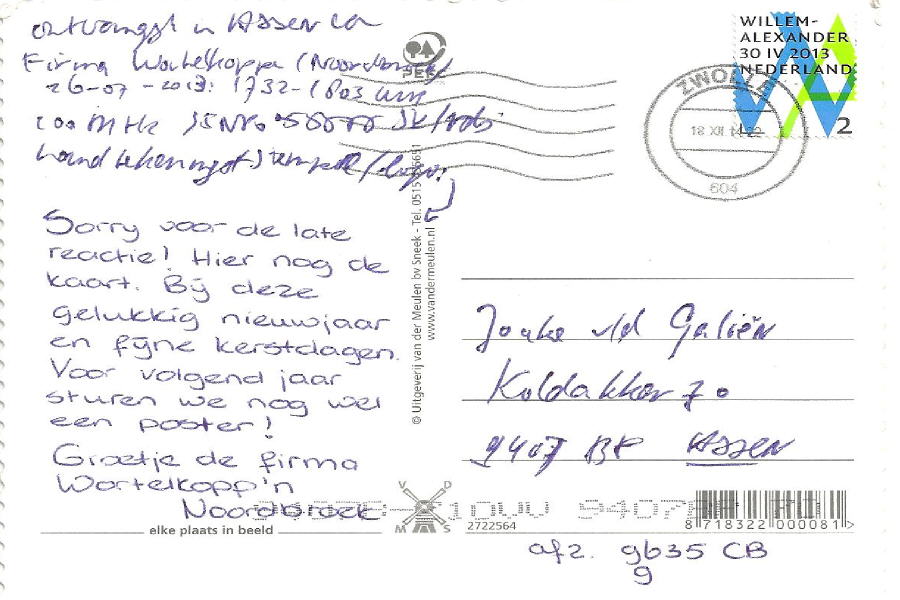 ontvangst in Assen
Firma Wortelkopp'n (Noordbroek)
26-07-2013: 1732-1803 uur
100 MHz
handtekening + stempel / logo:
Sorry voor de late
reactie! Hier nog de
kaart. Bij deze
gelukkig nieuwjaar
en fijne kerstdagen.
Voor volgend jaar
sturen we nog wel
een poster!
Groetje de firma
Wortelkopp'n
Noordbroek
elke plaats in beeld
© Uitgeverij van der Meulen bv Sneek - Tel. 0515
www.vandermeulen.nl
V D
M S
2722564
WILLEM-
ALEXANDER
30 IV 2013
NEDERLAND
2
ZWOLLE
18 XII
604
Jouke v/d Galiën
Koldakker 70
9407 BP Assen
8 718322 000081 >
afz. 9635 CB
9